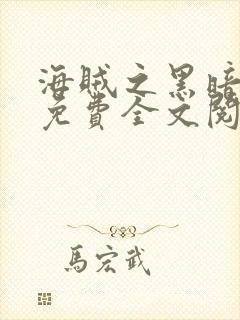 海賊之黑暗
免費全文閱
馬宏武